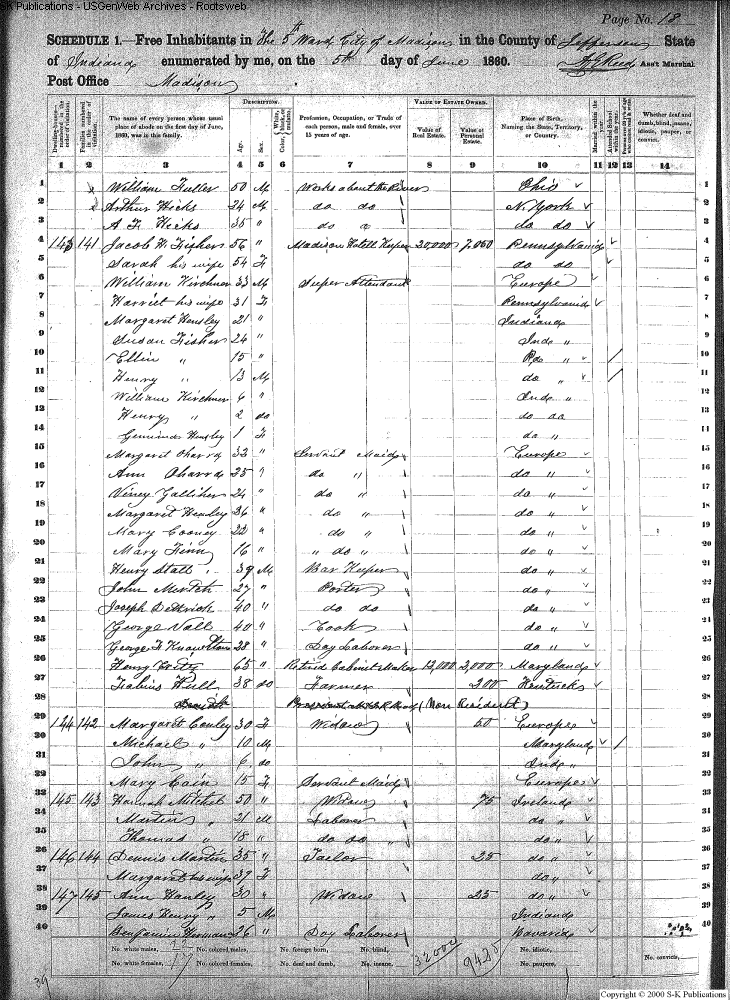 S-K Publications - USGenWeb Archives - Rootsweb
Page No. 18
SCHEDULE 1.—Free Inhabitants in The 5th Ward, City of Madison in the County of Jefferson State
of Indiana enumerated by me, on the 5th day of June 1860. Ass't Marshal.
Post Office Madison
DESCRIPTION. VALUE OF ESTATE OWNED.
The name of every person whose usual place of abode on the first day of June, 1860, was in this family. Age. Sex. Profession, Occupation, or Trade of each person, male and female, over 15 years of age. Value of Real Estate. Value of Personal Estate. Place of Birth, Naming the State, Territory, or Country. Whether deaf and dumb, blind, insane, idiotic, pauper, or convict.
1 2 3 4 5 6 7 8 9 10 11 12 13 14
1 William Fuller 50 M Works about the River Ohio 1
2 Arthur Hicks 34 M do do N. York 2
3 A F Hicks 35 " do do do 3
4 143 141 Jacob W Fisher 56 " Madison Hotell Keeper 20,000 7,000 Pennsylvania 4
5 Sarah his wife 54 F do do 5
6 William Kirchner 33 M Super Attendant Europe 6
7 Harriet his wife 31 F Pennsylvania 7
8 Margaret Hensley 21 " Indiana 8
9 Susan Fisher 24 " Ind " 9
10 Ellin " 15 " " / 10
11 Henry " 13 M do " / 11
12 William Kirchner 4 " Ind "
13 Henry " 2 do do do
14 Hensley 1 F do "
15 Margaret Oharra 32 " Servant Maid Europe
16 Ann Oharra 25 " do " do "
17 Galliher 24 " do " do "
18 Margaret Hensley 36 " do " do "
19 Mary Cooney 22 " do " do "
20 Mary Finn 16 " " do " do "
21 Henry Stall 39 M Bar Keeper do "
22 John 27 " Porter do "
23 Joseph Detrich 40 " do do do "
24 George Vall 40 " Cook do "
25 George F Knowlton 28 " Day Laborer do "
26 Henry Fritz 65 " Retired Cabinet Maker 12,000 2,000 Maryland
27 Hull 38 do Farmer 200 Kentucky
28 (Non Resident)
29 144 142 Margaret Conley 30 F Widow 50 Europe
30 Michael " 10 M Maryland /
31 John " 6 do Ind "
32 Mary Cain 15 F Servant Maid Europe
33 145 143 Hannah Mitchel 50 " Widow 75 Ireland
34 Martin " 21 M Laborer do "
35 Thomas " 18 " do do do "
36 146 144 Dennis Martin 35 " Tailor 25 do "
37 Margaret his wife 37 F do "
38 147 145 Ann Hanley 30 " Widow 25 do "
39 James Henry " 5 M Indiana
40 Benjamin Herman 26 " Day Laborer Bavaria 40
No. white males, No. colored males, No. foreign born, No. blind, 32000 9425 No. idiotic, No. convicts,
No. white females, No. colored females, No. deaf and dumb, No. insane, No. paupers,
Copyright © 2000 S-K Publications